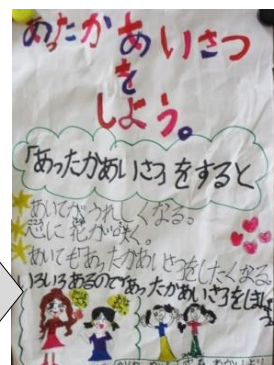 あったかあいさつ
を
しよう。
「あったかあいさつ」をすると
あいてがうれしくなる。
心に花が咲く。
あいても「あったかあいさつ」をしたくなる
いろいろあるので「あったかあいさつ」をしましょう